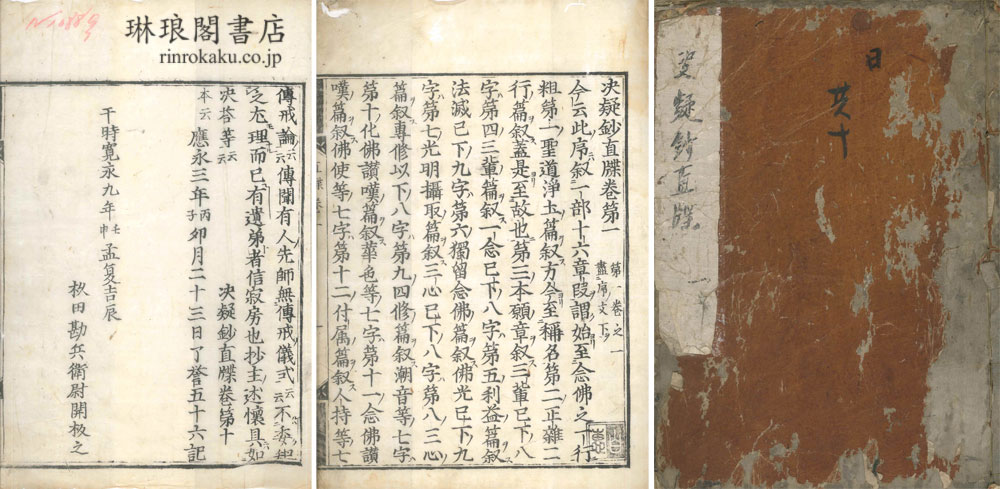 琳琅閣書店
rinrokaku.co.jp
傳戒論云傳聞有人先師無傳戒儀式云云不
乏尢理而已有遺弟者信寂房也抄主述懷具如
決答等云云 決疑鈔直牒卷第十
本云 應永三年丙子卯月二十三日了誉五十六記
干時寛永九年壬申孟夏吉辰
秋田勘兵衛尉開板之
決疑鈔直牒卷第一 第一卷之一 盡序文下
今云此序叙一部十六章段謂始至念佛之一行
粗第一聖道淨土篇叙方今至稱名第二正雜二
行篇叙蓋是至故也第三本願章叙三輩已下八
字第四三輩篇叙一念已下八字第五利益篇叙
法滅已下九字第六獨留念佛篇叙佛光已下九
字第七光明攝取篇叙三心已下八字第八三心
篇叙專修以下八字第九四修篇叙潮音等七字
第十化佛讃嘆篇叙華色等七字第十一念佛讃
嘆篇叙佛使等七字第十二付属篇叙人持等七
決疑鈔直牒
日
共十